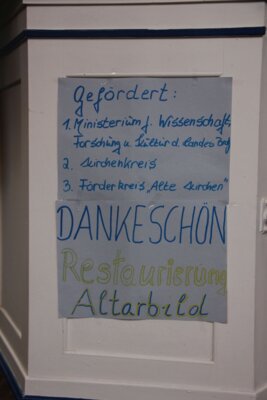 Gefördert:
1. Ministerium f. Wissenschaft,
Forschung u. Kultur d. Landes
2. Kirchenkreis
3. Förderkreis „Alte Kirchen“
DANKESCHÖN
Restaurierung
Altarbild